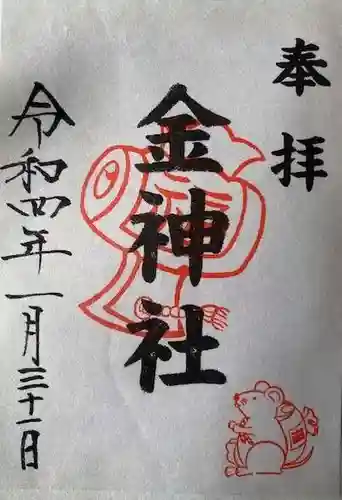 奉拝
金神社
令和四年一月三十一日